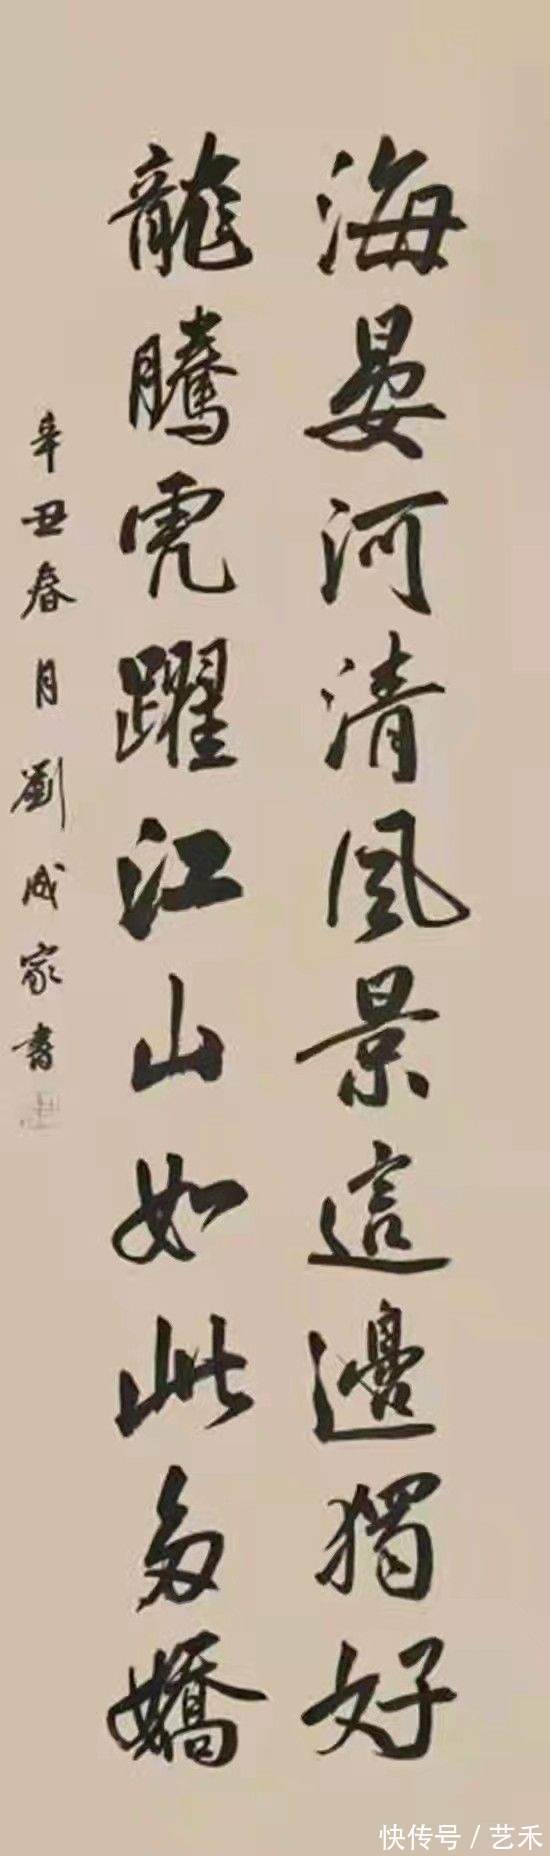 海晏河清風景這邊獨好
龍騰虎躍江山如此多嬌
辛丑春月劉成家書
快传号 / 艺禾